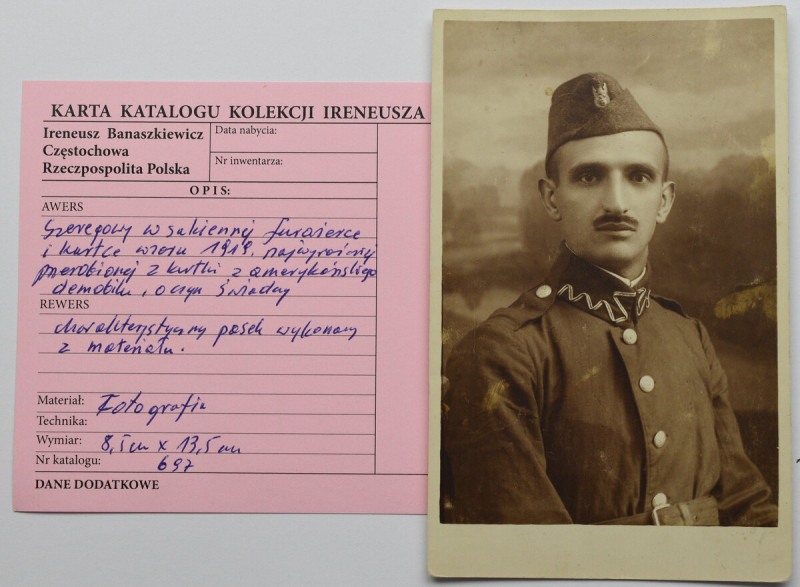 KARTA KATALOGU KOLEKCJI IRENEUSZA
Ireneusz Banaszkiewicz
Częstochowa
Rzeczpospolita Polska
Data nabycia:
Nr inwentarza:
OPIS:
AWERS
Szeregowy w sukiennej furażerce
i kurtce wzoru 1919, najwyraźniej
przerobionej z kurtki z amerykańskiego
demobilu, o czym świadczy
REWERS
charakterystyczny pasek wykonany
z materiału.
Materiał: Fotografia
Technika:
Wymiar: 8,5cm x 13,5cm
Nr katalogu: 697
DANE DODATKOWE